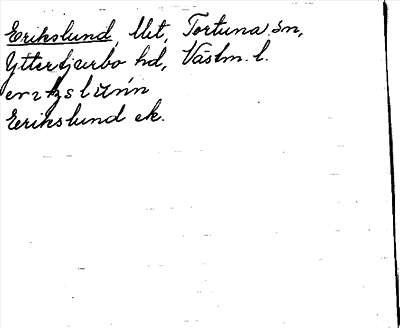 Erikslund llt, Tortuna sn,
Yttertjurbo hd, Västm. l.
Erikslund ek.